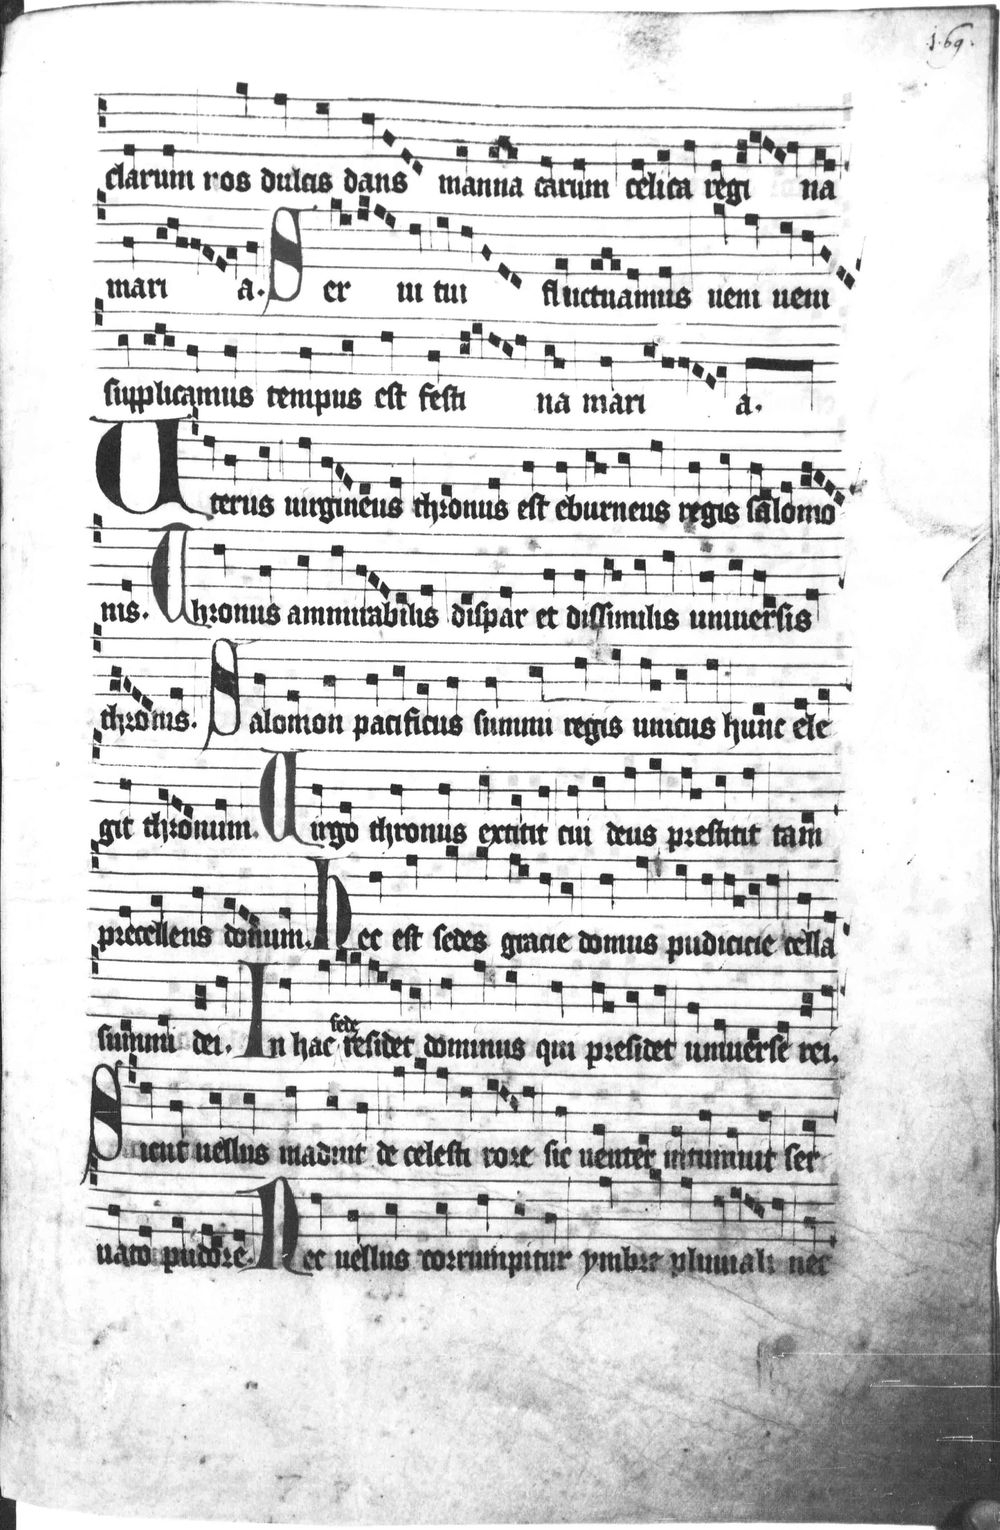 .j.69.
clarum ros dulcis dans manna carum celica regi na
mari a. Ser ui tui fluctuamus ueni ueni
supplicamus tempus est festi na mari a.
Uterus uirgineus thronus est eburneus regis salomo
nis. Thronus ammirabilis dispar et dissimilis uniuersis
thronis. Salomon pacificus summi regis unicus hunc ele
git thronum. Uirgo thronus extitit cui deus prestitit tam
precellens donum. Hec est sedes gracie domus pudicicie cella
summi dei. In hac sede residet dominus qui presidet uniuerse rei.
Sicut uellus maduit de celesti rore sic uenter intumuit ser
uato pudore. Nec uellus corrumpitur ymbre pluuiali nec